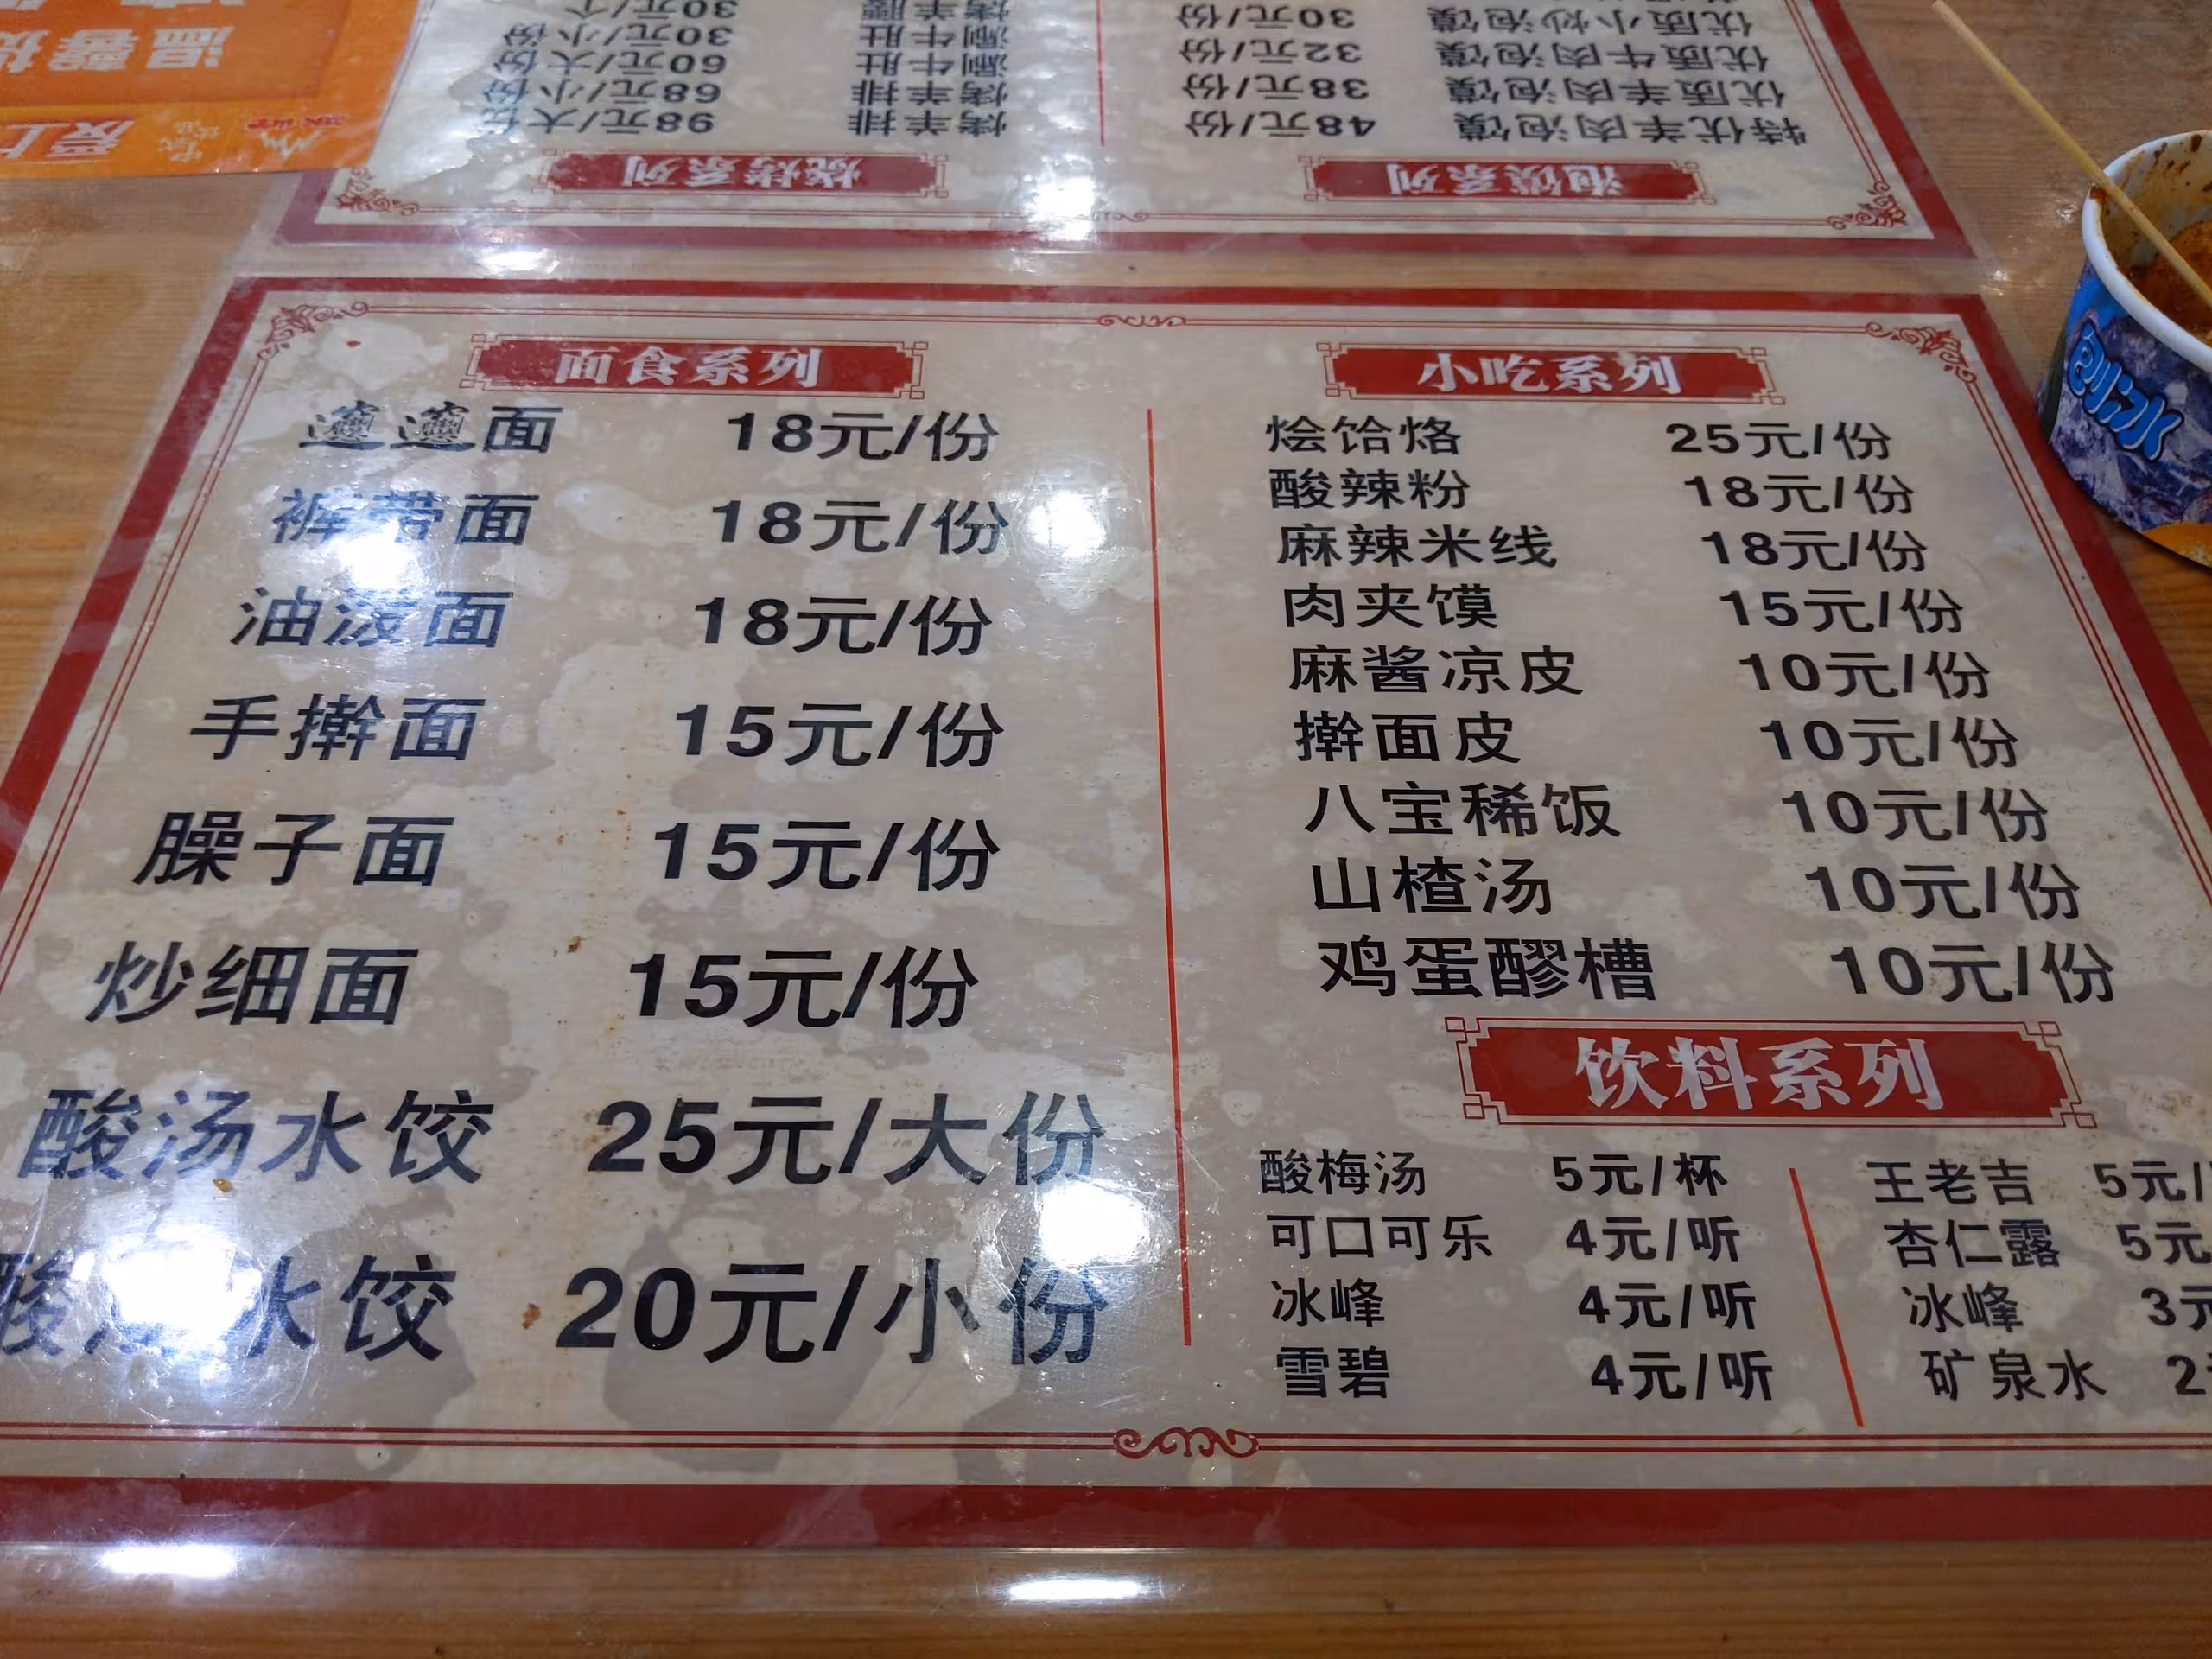 烤羊腰 30元/个
涮牛肚 30元/小份
涮牛肚 60元/大份
烤羊排 68元/小份
烤羊排 98元/大份
烧烤系列
优质小炒泡馍 30元/份
优质牛肉泡馍 32元/份
优质羊肉泡馍 38元/份
特优羊肉泡馍 48元/份
泡馍系列
面食系列
𰻝𰻝面 18元/份
裤带面 18元/份
油泼面 18元/份
手擀面 15元/份
臊子面 15元/份
炒细面 15元/份
酸汤水饺 25元/大份
酸汤水饺 20元/小份
小吃系列
烩饸烙 25元/份
酸辣粉 18元/份
麻辣米线 18元/份
肉夹馍 15元/份
麻酱凉皮 10元/份
擀面皮 10元/份
八宝稀饭 10元/份
山楂汤 10元/份
鸡蛋醪槽 10元/份
饮料系列
酸梅汤 5元/杯
可口可乐 4元/听
冰峰 4元/听
雪碧 4元/听
王老吉 5元/
杏仁露 5元
冰峰 3元
矿泉水 2
刨冰
温馨
爱上